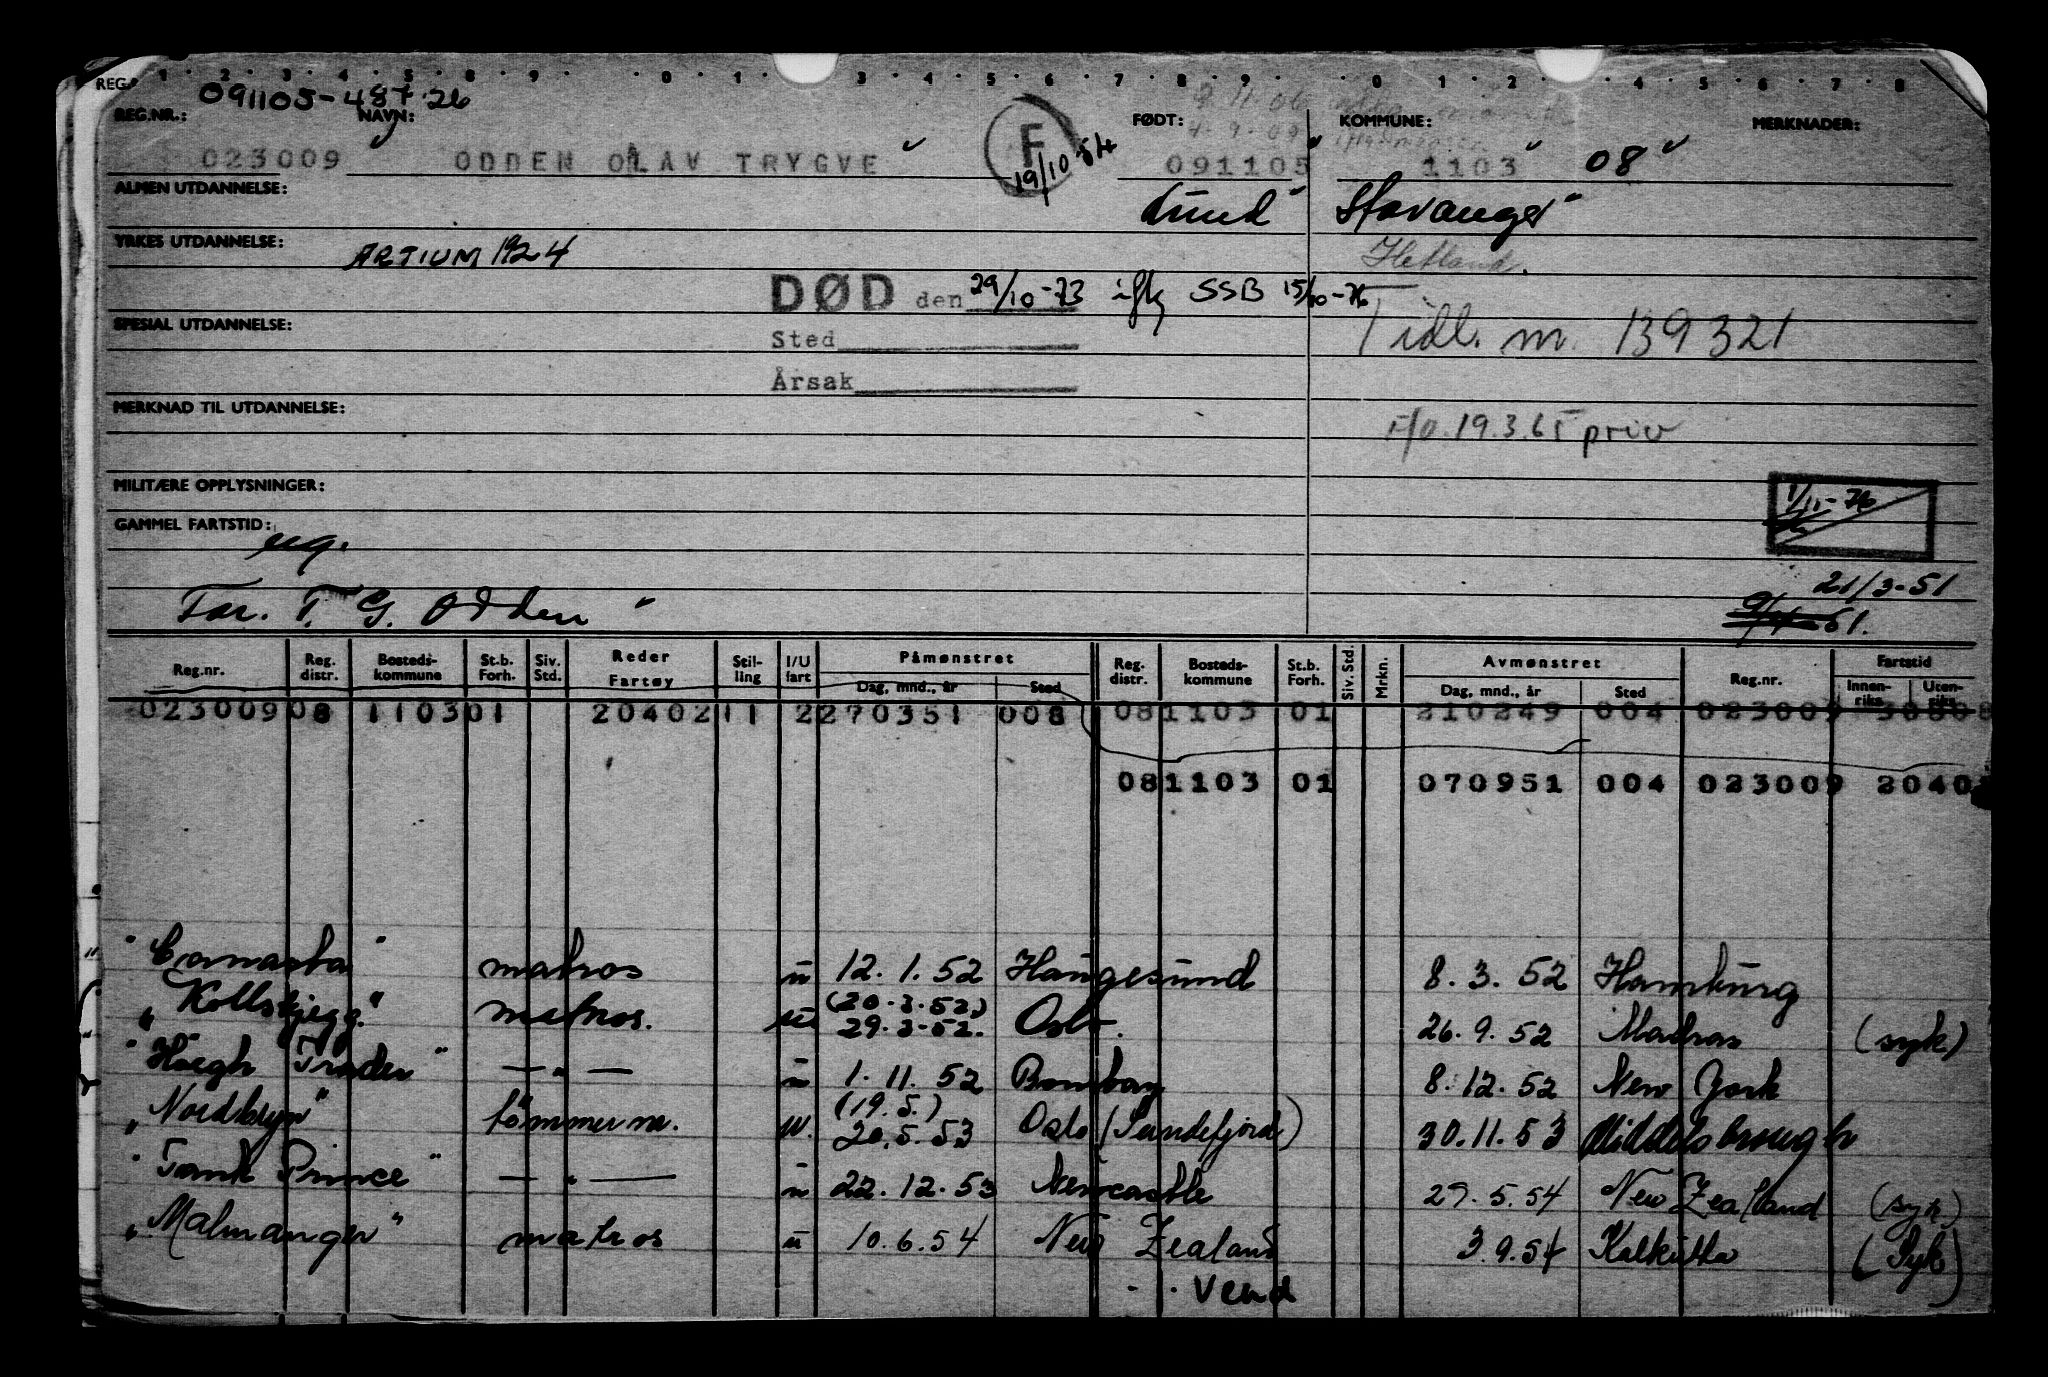 REG.
1 · 2 · 3 · 4 · 5 · 8 · 9 · 0 · 1 · 3 · 4 · 5 · 6 · 7 · 8 · 9 · 0 · 1 · 2 · 4 · 5 · 6 · 7 · 8
091105-487 26
REG.NR.: NAVN: FØDT: KOMMUNE: MERKNADER:
023009 ODDEN OLAV TRYGVE F 19/10 54 091105 1103 08
ALMEN UTDANNELSE: Lund Stavanger
YRKES UTDANNELSE: ARTIUM 1924 Hetland.
DØD den 29/10-73 iflg SSB 15/10-76
SPESIAL UTDANNELSE: Tidl. m. 139321
Sted
Årsak
MERKNAD TIL UTDANNELSE:
19.3.65 priv
MILITÆRE OPPLYSNINGER: 1/11-76
GAMMEL FARTSTID: ug.
21/3-51
Far. T. G. Odden 51.
Reg.nr. Reg. distr. Bosteds-kommune St.b. Forh. Siv. Std. Reder Fartøy Stil-ling I/U fart Påmønstret Dag, mnd., år Sted Reg. distr. Bosteds-kommune St.b. Forh. Siv. Std. Mrkn. Avmønstret Dag, mnd., år Sted Reg.nr. Fartstid Innen-riks Uten-riks
023009 08 1103 01 20402 11 2 270351 008 08 1103 01 210249 004 023009 30808
08 1103 01 070951 004 023009 2040
"Cornasta" matros u 12.1.52 Haugesund 8.3.52 Hamburg
"Kollbjørg" matros. u (20.3.52.) 29.3-52. Oslo. 26.9.52 Madras (syk)
"Höegh Trader" — " — u 1.11.52 Bombay 8.12.52 New York
"Nordbryn" tömmerm. u. (19.5.) 20.5.53 Oslo (Sandefjord) 30.11.53 Middelsbrough
"Tank Prince" — " — u 22.12.53 Newcastle 27.5.54 New Zealand (syk)
"Malmanger" matros u 10.6.54 New Zealand 3.9.54 Kalkutta (Syk)
Vend